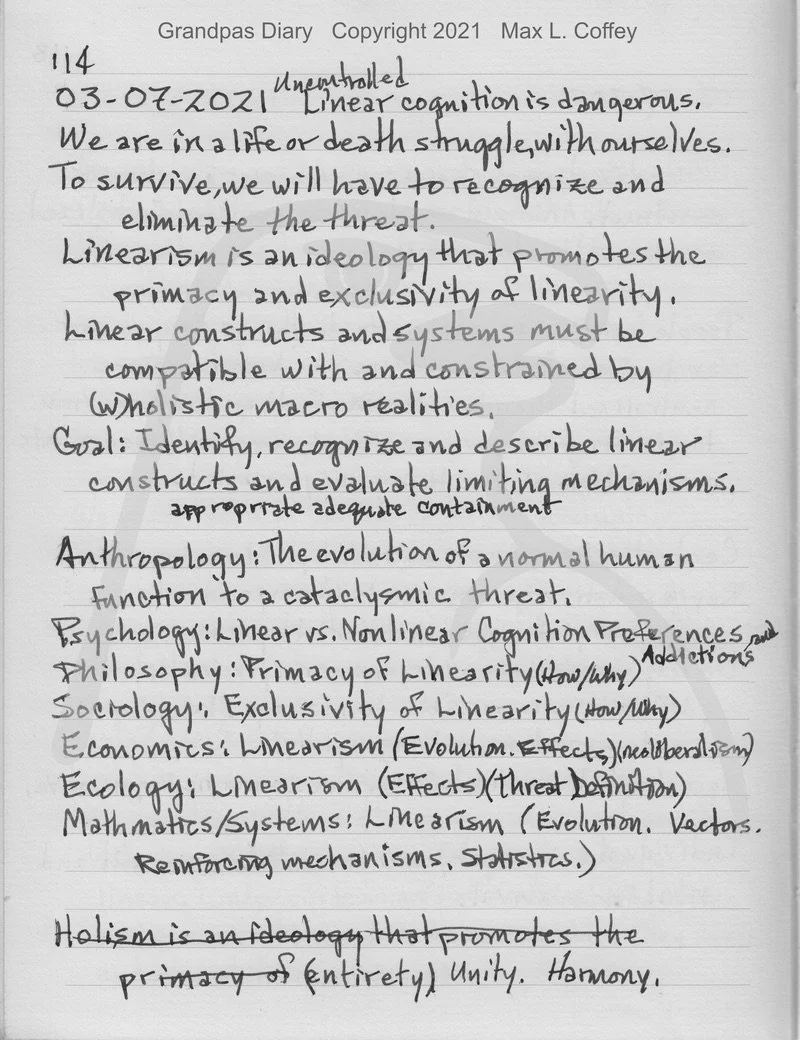 Grandpas Diary Copyright 2021 Max L. Coffey
114
Uncontrolled
03-07-2021 Linear cognition is dangerous.
We are in a life or death struggle, with ourselves.
To survive, we will have to recognize and
eliminate the threat.
Linearism is an ideology that promotes the
primacy and exclusivity of linearity.
Linear constructs and systems must be
compatible with and constrained by
(w)holistic macro realities.
Goal: Identify, recognize and describe linear
constructs and evaluate limiting mechanisms.
appropriate adequate containment
Anthropology: The evolution of a normal human
function to a cataclysmic threat.
Psychology: Linear vs. Nonlinear Cognition Preferences and
Addictions
Philosophy: Primacy of Linearity (How/Why)
Sociology: Exclusivity of Linearity (How/Why)
Economics: Linearism (Evolution. Effects) (neoliberalism)
Ecology: Linearism (Effects) (Threat Definition)
Mathmatics/Systems: Linearism (Evolution. Vectors.
Reinforcing mechanisms. Statistics.)
Holism is an ideology that promotes the
primacy of (entirety) Unity. Harmony.